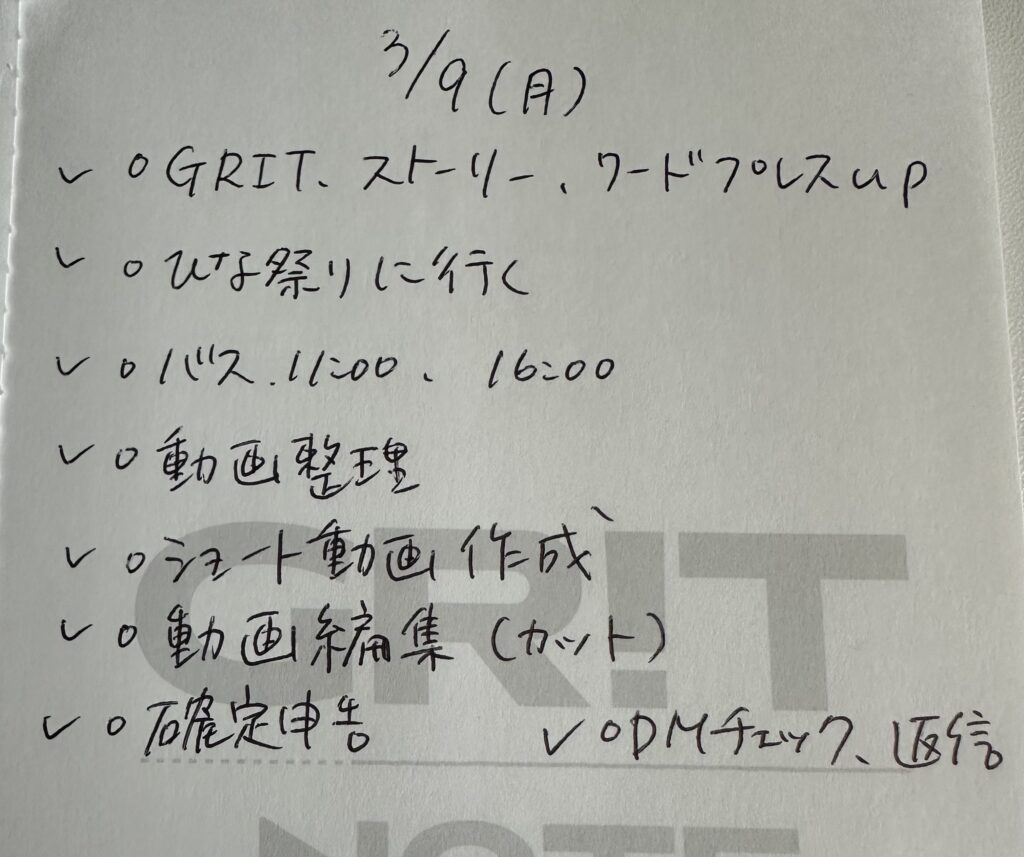 3/9(月)
✓ ○ GRIT、ストーリー、ワードプレスup
✓ ○ ひな祭りに行く
✓ ○ バス、11:00、16:00
✓ ○ 動画整理
✓ ○ ショート動画作成
✓ ○ 動画編集(カット)
✓ ○ 確定申告 ✓ ○ DMチェック、返信
GR!T
NOTE